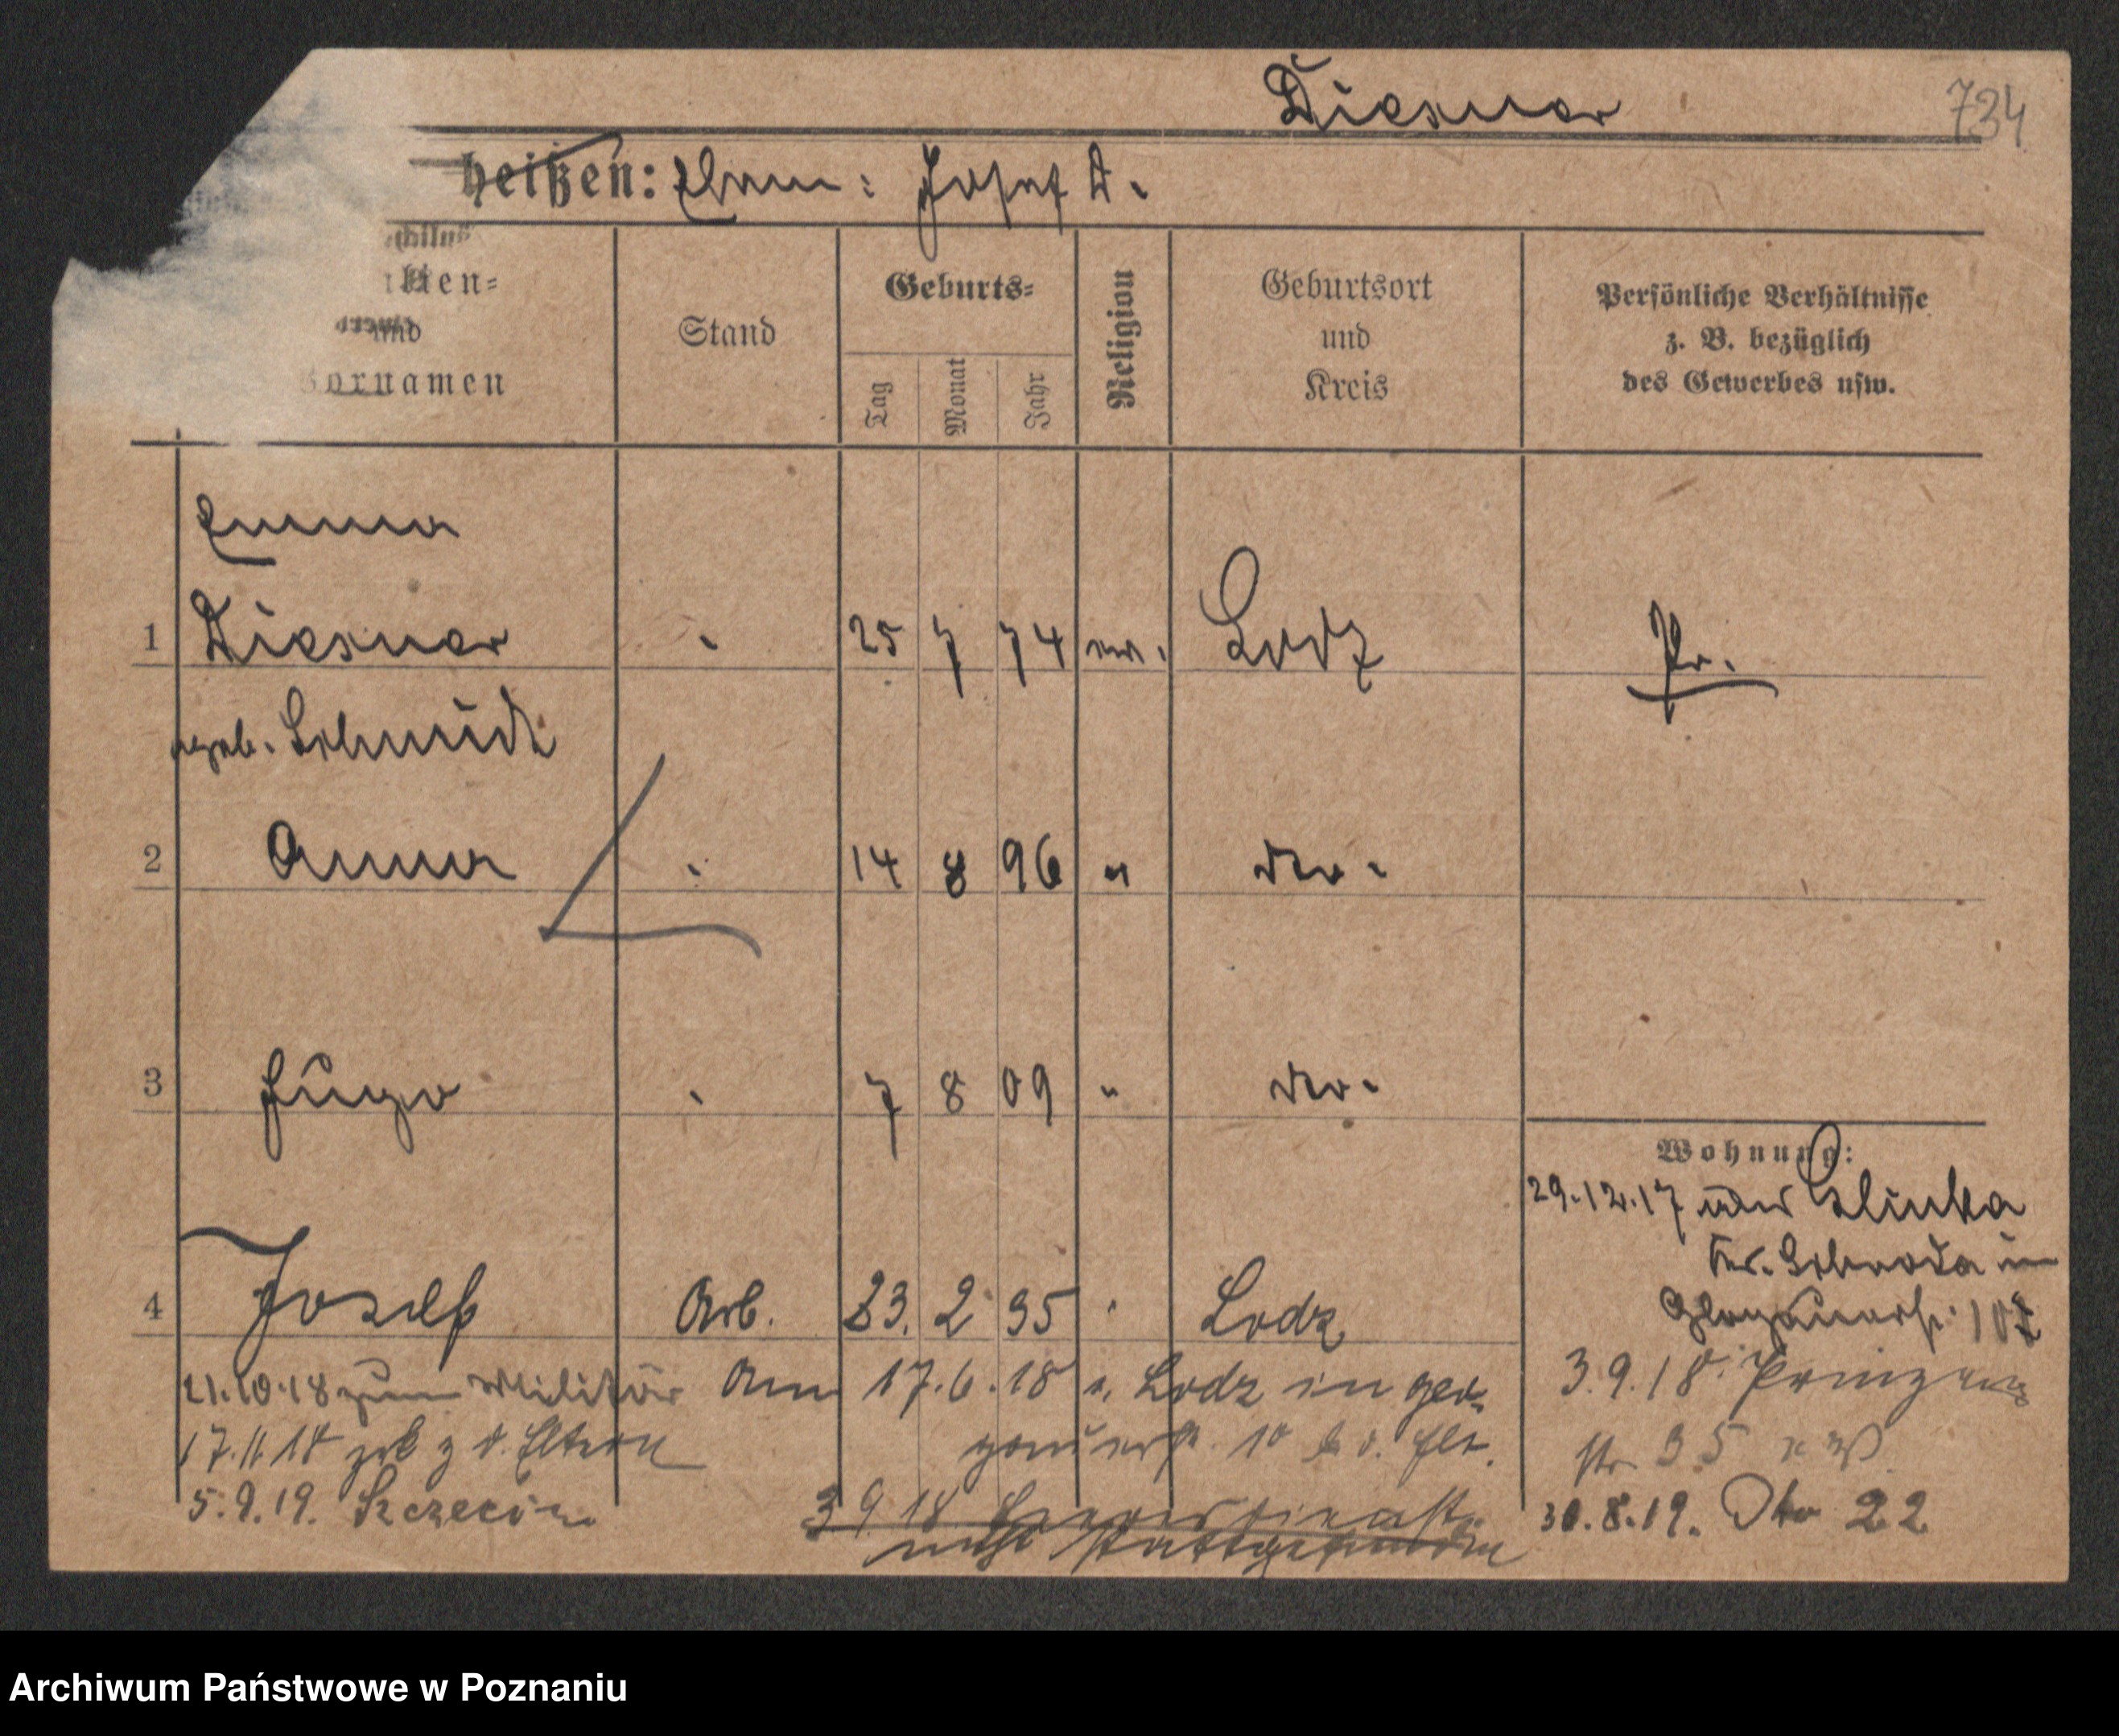 Diesner
734
heißen: Ehem: Josef D.
ten-
und
Vornamen
Stand
Geburts-
Tag
Monat
Jahr
Religion
Geburtsort
und
Kreis
Persönliche Verhältnisse
z. B. bezüglich
des Gewerbes usw.
Emma
1 Diesner 25 7 74 ev. Lodz Pr.
geb. Schmidt
2 Anna 14 8 96 " dto.
3 Hugo 7 8 09 " dto.
Wohnung:
29.12.17 aus Glinka
Kr. Schroda in
Glogauerstr. 107
4 Josef Arb. 23. 2 95 Lodz
21.10.18 zum Militär Am 17.6.18 v. Lodz in
3.9.18 Prinzen
17.11.18 z d. Eltern 10
str 35
5.9.19. Szczecin
3 9 18
30.8.19. Dto 22
nicht stattgefunden
Archiwum Państwowe w Poznaniu